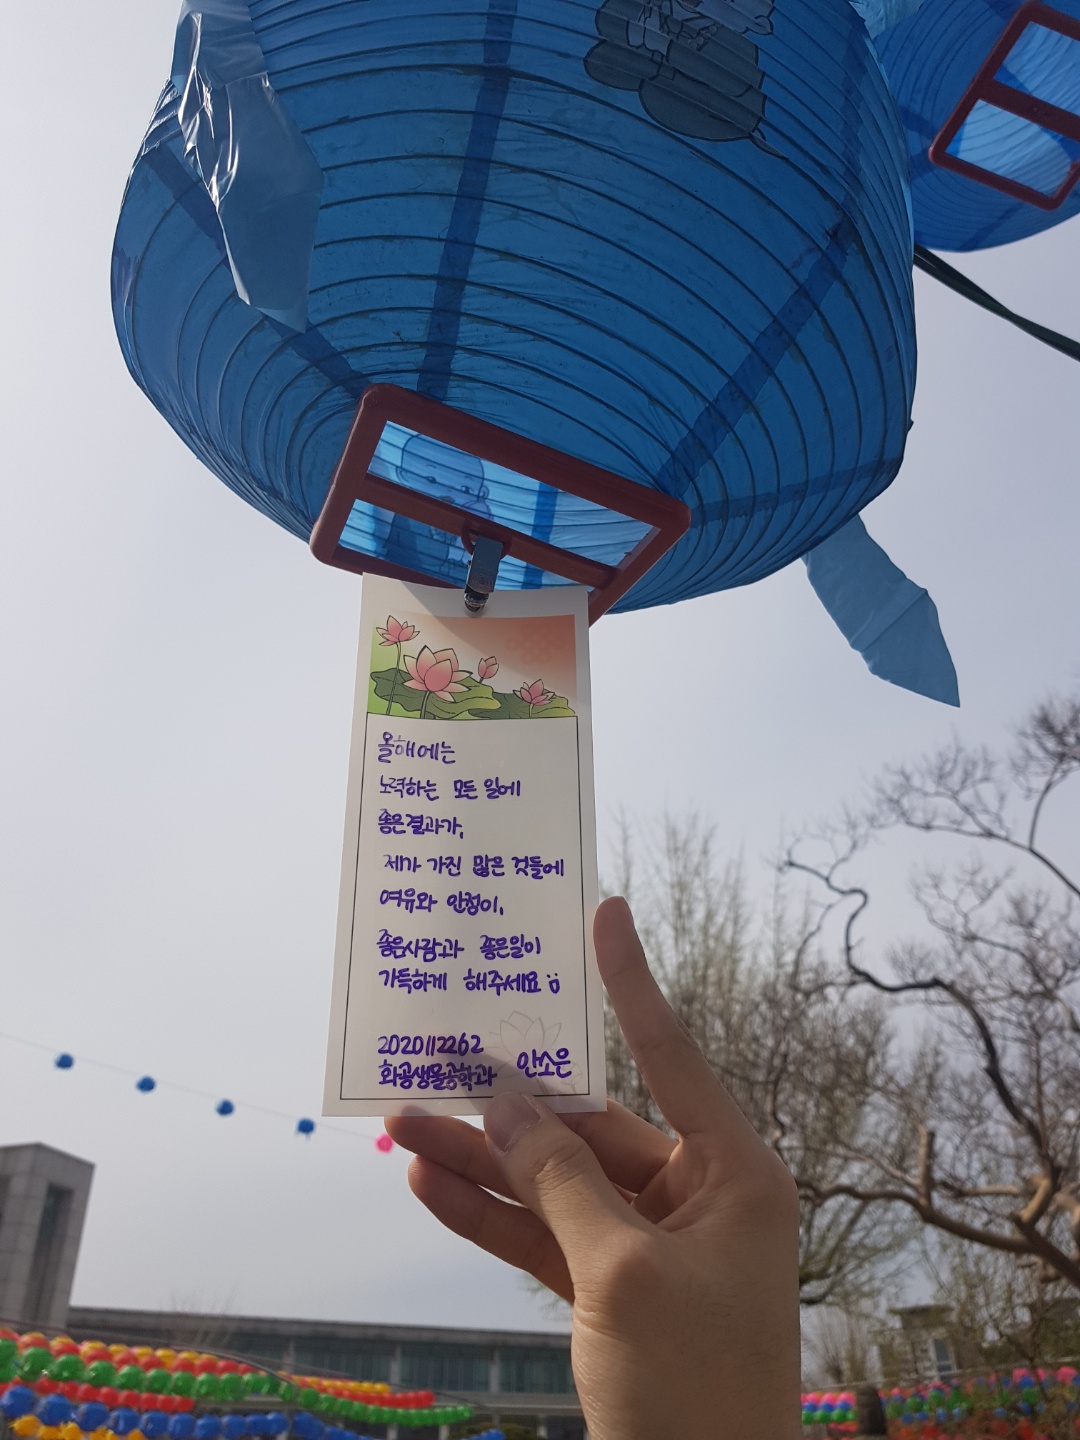 올해에는
노력하는 모든 일에
좋은결과가,
제가 가진 많은 것들에
여유와 안정이,
좋은사람과 좋은일이
가득하게 해주세요
2020112262
화공생물공학과 안소은